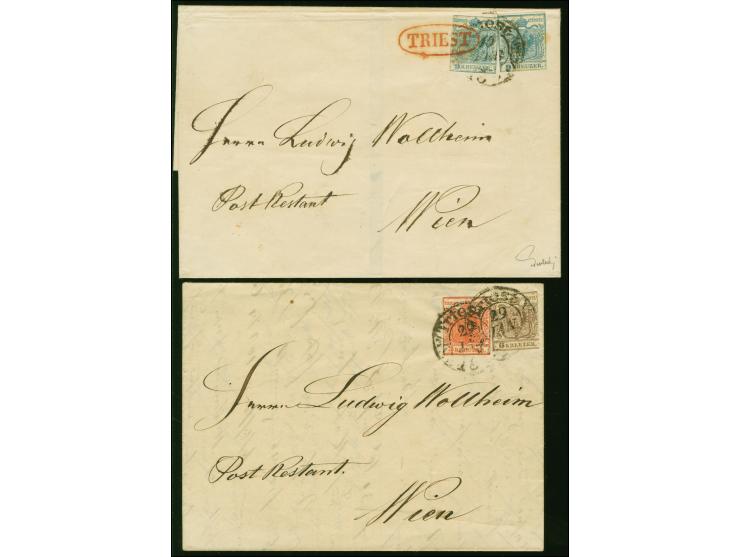 TRIEST
KREUZER
Herrn Ludwig Wollheim
Post Restant
Wien
29
29
JAN
6 KREUZER
Herrn Ludwig Wollheim
Post Restant.
Wien